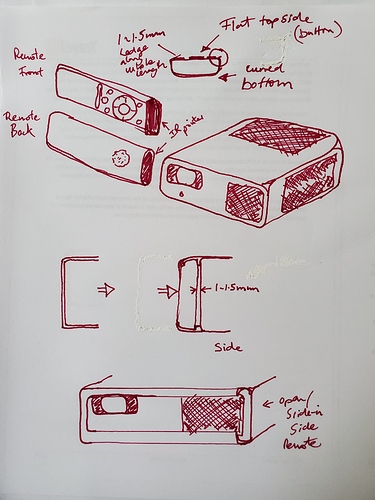 1-1.5mm
Ledge
along
whole
length
Flat topside
(button)
curved
bottom
Remote
Front
Remote
Back
IR
1-1.5mm
Side
open/
Slide-in
Side
Remote